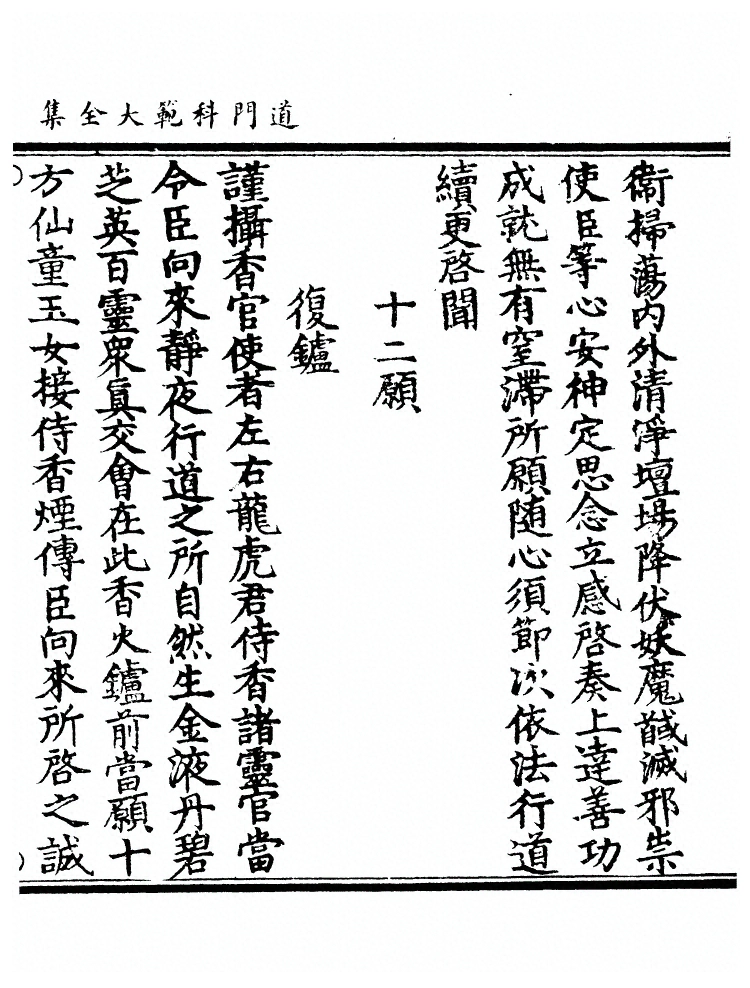 道門科範大全集
衞掃蕩內外清淨壇場降伏妖魔馘滅邪祟
使臣等心安神定思念立感啓奏上達善功
成就無有窒滯所願随心須節次依法行道
續更啓聞
十二願
復鑪
謹攝香官使者左右龍虎君侍香諸靈官當
令臣向來靜夜行道之所自然生金液丹碧
芝英百靈衆眞交會在此香火鑪前當願十
方仙童玉女接侍香煙傳臣向來所啓之誠